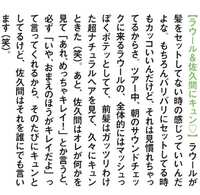 【ラウール&佐久間にキュン♡】 ラウールが
髪をセットしてない時の感じっていいんだ
よな。もちろんバリバリにセットしてる時
もカッコいいんだけど、それは見慣れちゃ
ってるからさ。ツアー中、朝のサウンドチェッ
クに来るラウールの、全体的にはマッシュっ
ぽくボテッとしてて、前髪はガッツリわけ
た超ナチュラルヘアを見て、久々にキュン
ときた(笑)。あと、佐久間はオレが何かを
見て「あれ、めっちゃキレイ!」とか言うと、
必ず「いや、おまえのほうがキレイだよ」っ
て言ってくれるから、そのたびにキュンと
してるけど、佐久間はそれを誰にでも言い
ます(笑)。